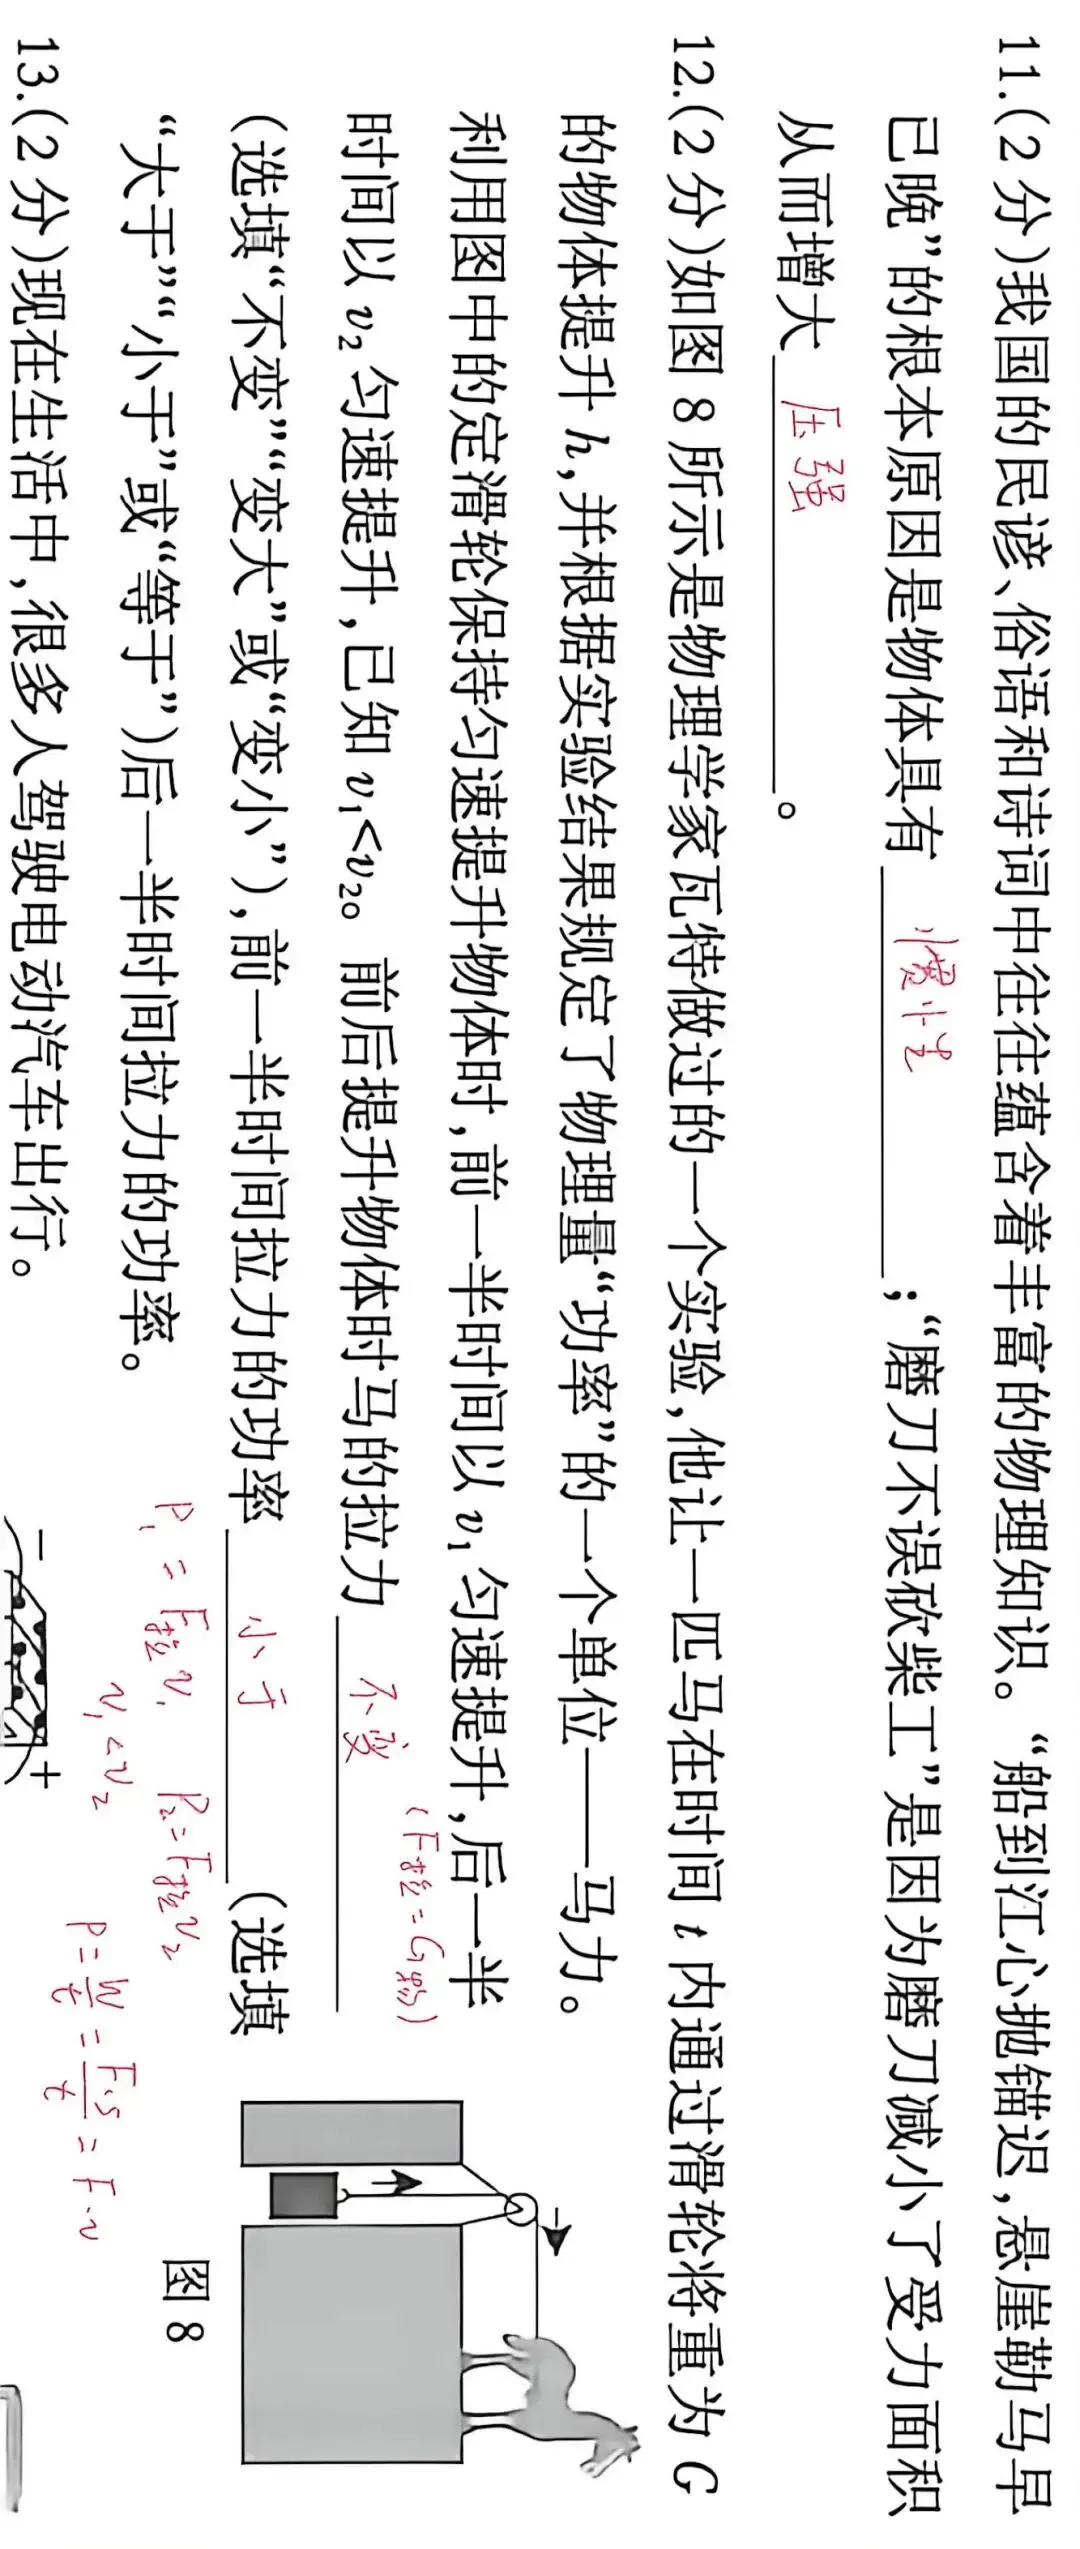 11.(2 分)我国的民谚、俗语和诗词中往往蕴含着丰富的物理知识。“船到江心抛锚迟,悬崖勒马早
已晚”的根本原因是物体具有 惯性 ;“磨刀不误砍柴工”是因为磨刀减小了受力面积
从而增大 压强 。
12.(2 分)如图 8 所示是物理学家瓦特做过的一个实验,他让一匹马在时间 t 内通过滑轮将重为 G
的物体提升 h,并根据实验结果规定了物理量“功率”的一个单位——马力。
利用图中的定滑轮保持匀速提升物体时,前一半时间以 v₁ 匀速提升,后一半
时间以 v₂ 匀速提升,已知 v₁<v₂。前后提升物体时马的拉力 不变
(F拉=G物)
(选填“不变”“变大”或“变小”),前一半时间拉力的功率 小于 (选填
“大于”“小于”或“等于”)后一半时间拉力的功率。
P₁ = F拉v₁ P₂=F拉v₂
v₁<v₂
P=W/t=F·s/t=F·v
图 8
13.(2 分)现在生活中,很多人驾驶电动汽车出行。
− +